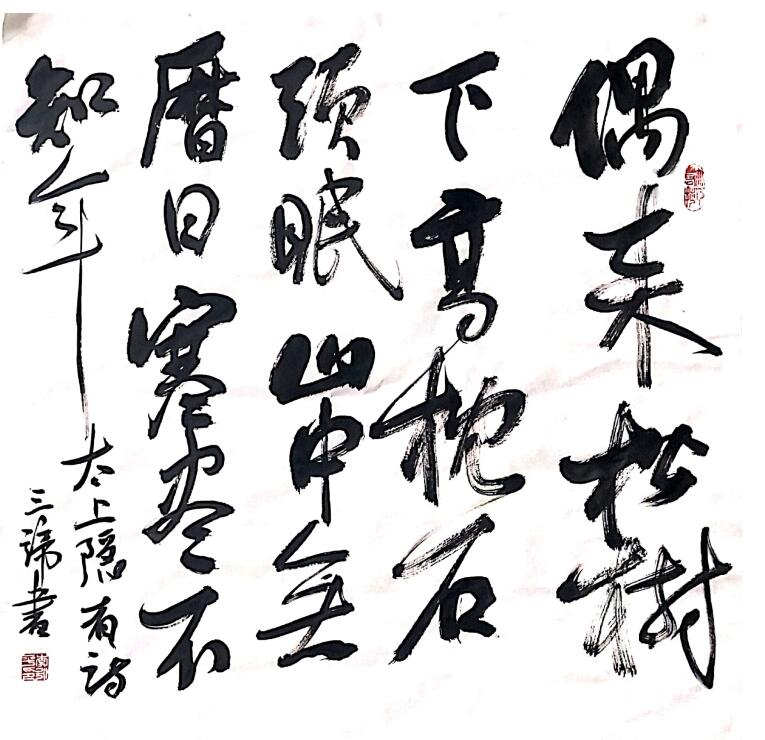 偶来松树
下高枕石
頭眠山中無
曆日寒尽不
知年
太上隐者诗
三 書